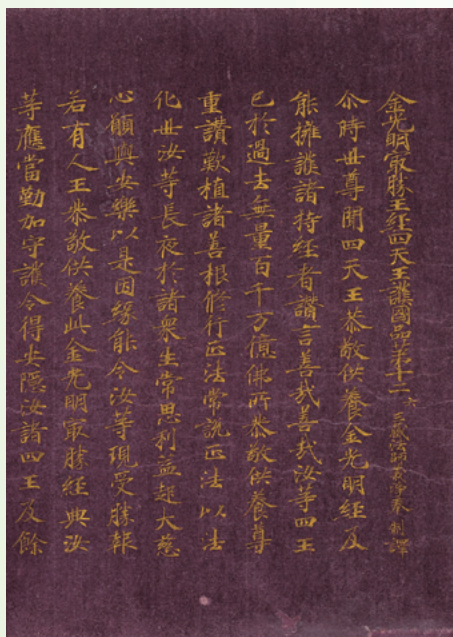 金光明㝡勝王經四天王護國品第十二 六 三藏法師義淨奉 制譯
尒時世尊聞四天王恭敬供養金光明經及
能擁護諸持經者讚言善哉善哉汝等四王
已於過去無量百千万億佛所恭敬供養尊
重讚歎植諸善根修行正法常說正法以法
化世汝等長夜於諸眾生常思利益起大慈
心願與安樂以是因緣能令汝等現受勝報
若有人王恭敬供養此金光明㝡勝經典汝
等應當勤加守護令得安隱汝諸四王及餘